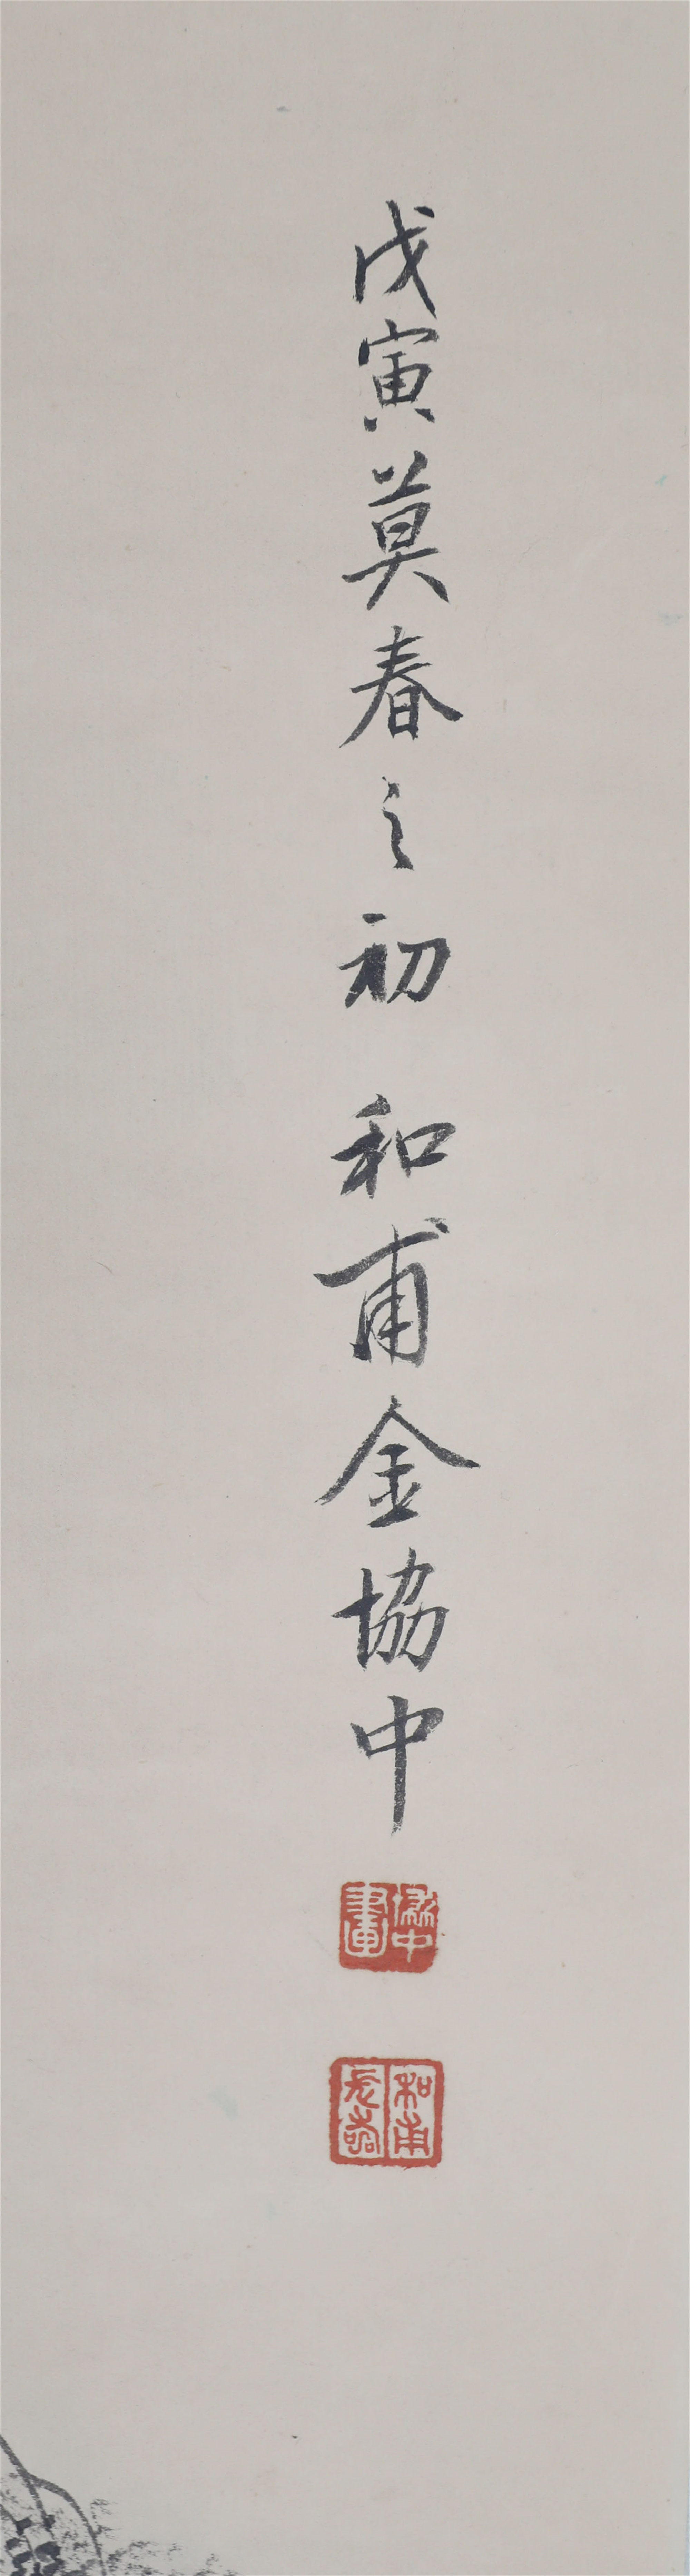 戊寅莫春之初 和甫金協中
協中畫
和甫